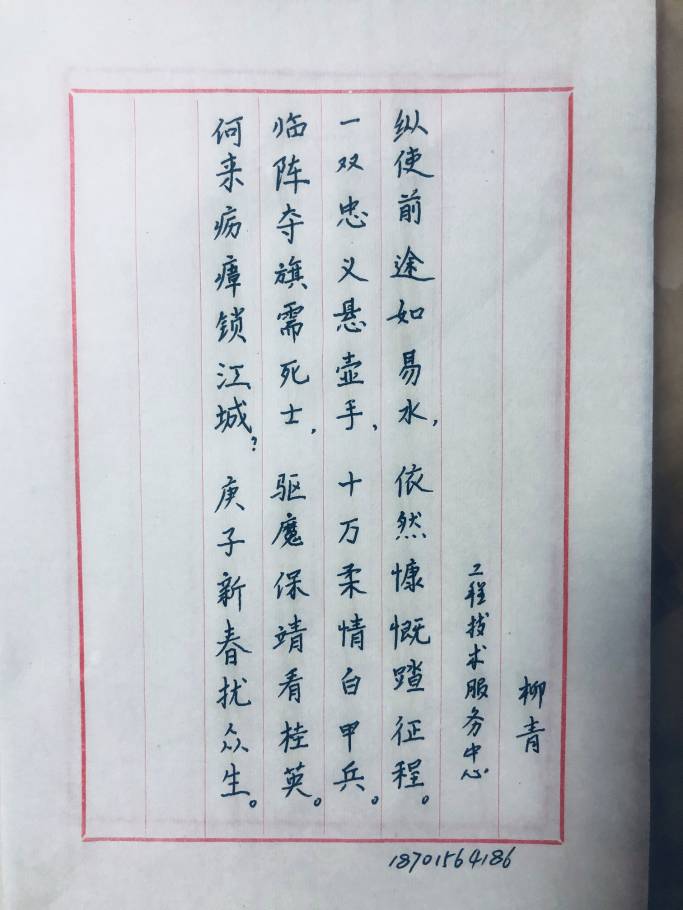 何来疠瘴锁江城？庚子新春扰众生。
临阵夺旗需死士，驱魔保靖看桂英。
一双忠义悬壶手、十万柔情白甲兵。
纵使前途如易水，依然慷慨踏征程。
工程技术服务中心
柳青
18701564186